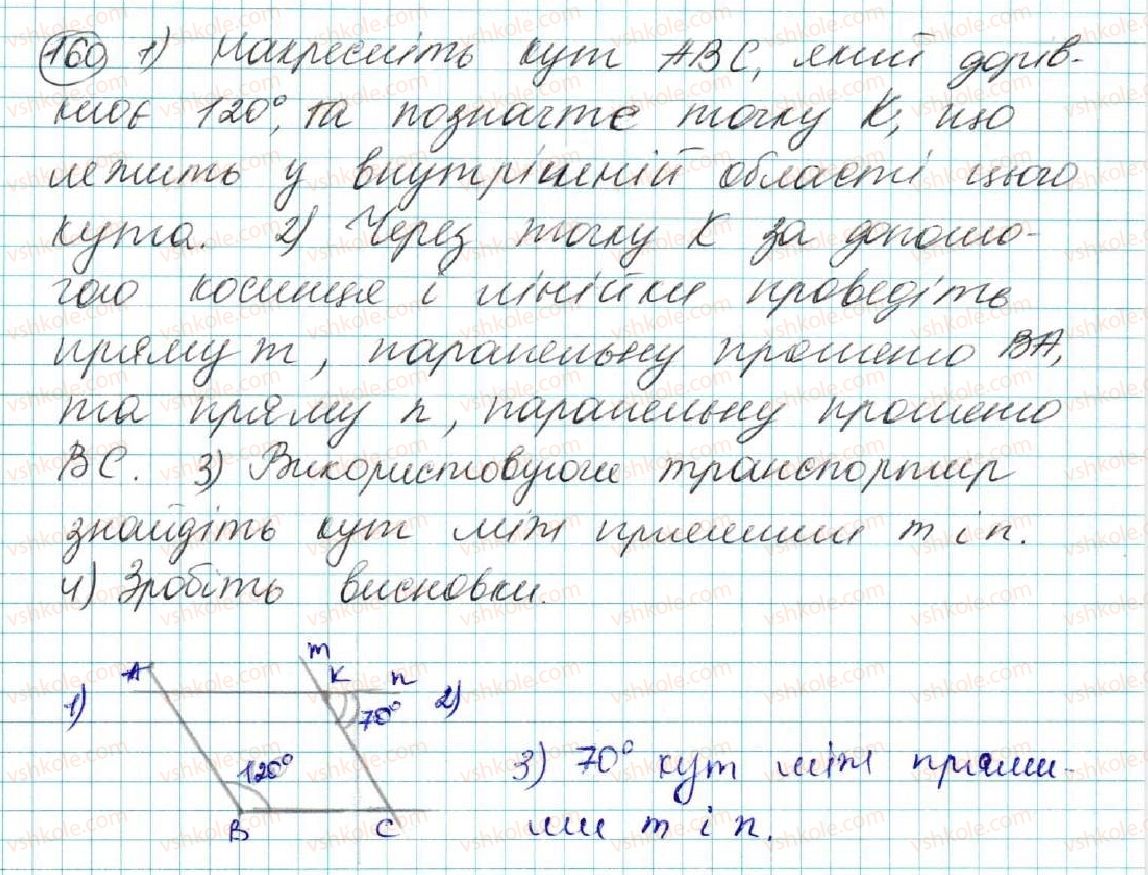 160 1) Накресліть кут ABC, який дорів-
нює 120°, та позначте точку K, що
лежить у внутрішній області цього
кута. 2) Через точку K за допомо-
гою косинця і лінійки проведіть
пряму m, паралельну променю BA,
та пряму n, паралельну променю
BC. 3) Використовуючи транспортир
знайдіть кут між прямими m і n.
4) Зробіть висновки.
m
A K n
1) 70° 2)
120°
3) 70° кут між прями-
B C ми m і n.